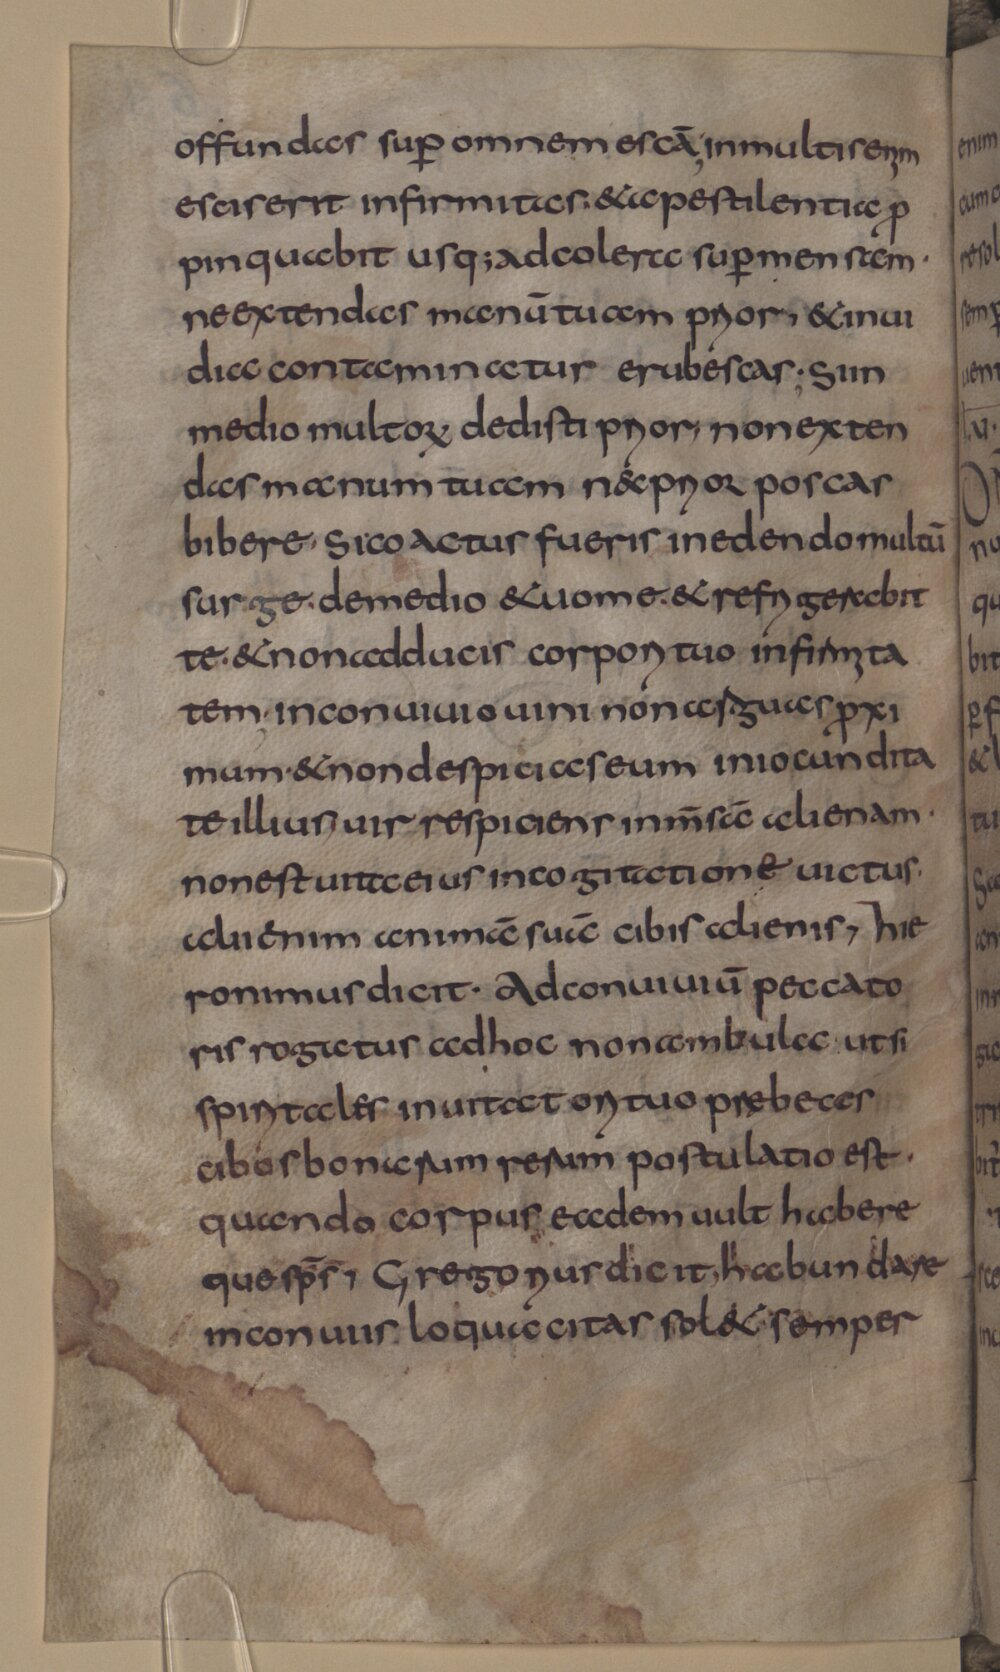 offundas sup̄ omnem escā, inmultis enim
escis erit infirmitas. &apestilentia p̄
pinquabit usq; adcolera sup̄ mensam.
neextendas manū tuam prior, &inui
dia contaminatur erubescas. Siin
medio multoꝝ dedisti prior, nonexten
das manum tuam n&prior poscas
bibere. Sicoactus fueris inedendo multū
surge. demedio &uome. &refrigerabit
te. &nonadducis corpori tuo infirmita
tem. inconuiuio uini non asguas proxi
mum. &nondespicias eum iniocundita
te illius, uir respiciens inm̄sā alienam.
nonest uita eius incogitatione uictus.
aluienim animā suā cibis alienis, hie
ronimus dicit. Adconuiuiū peccato
ris rogatus adhoc nonambula ut si
spiritales inuitatori tuo prebeas
cibos bonarum rerum postulatio est.
quando corpus eadem uult habere
que sp̄s, Gregorius dicit, habundare
inconuiis loquacitas sol& semper